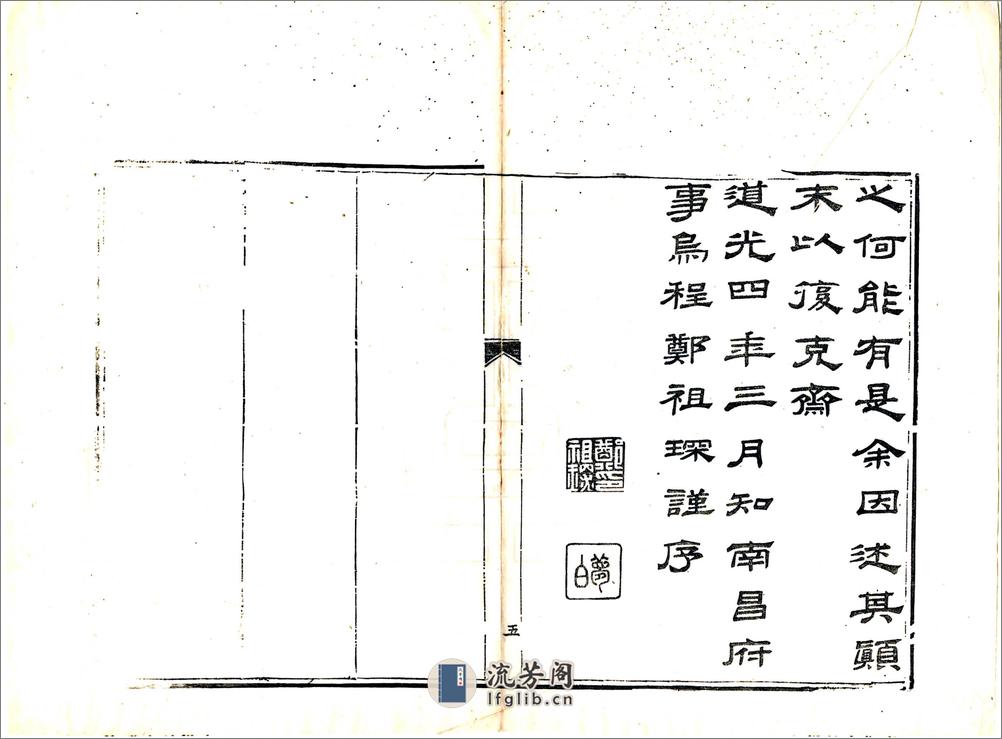 之何能有是余因述其顚
末以復克齋
道光四年三月知南昌府
事烏程鄭祖琛謹序
鄭印祖琛
夢白
五
流芳阁
lfglib.cn